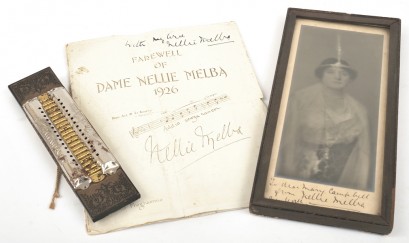 With my love
Nellie Melba
FAREWELL
OF
DAME NELLIE MELBA
1926
Nellie Melba
To dear Mary Campbell
from Nellie Melba